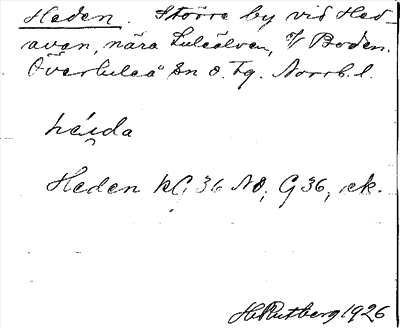 Heden. Större by vid Hed-
avan, nära Luleälven, V Boden.
Överluleå sn o. tg. Norrb. l.
héi̯da
Heden kC; 36 NO, G 36, ek.
H. Rutberg 1926